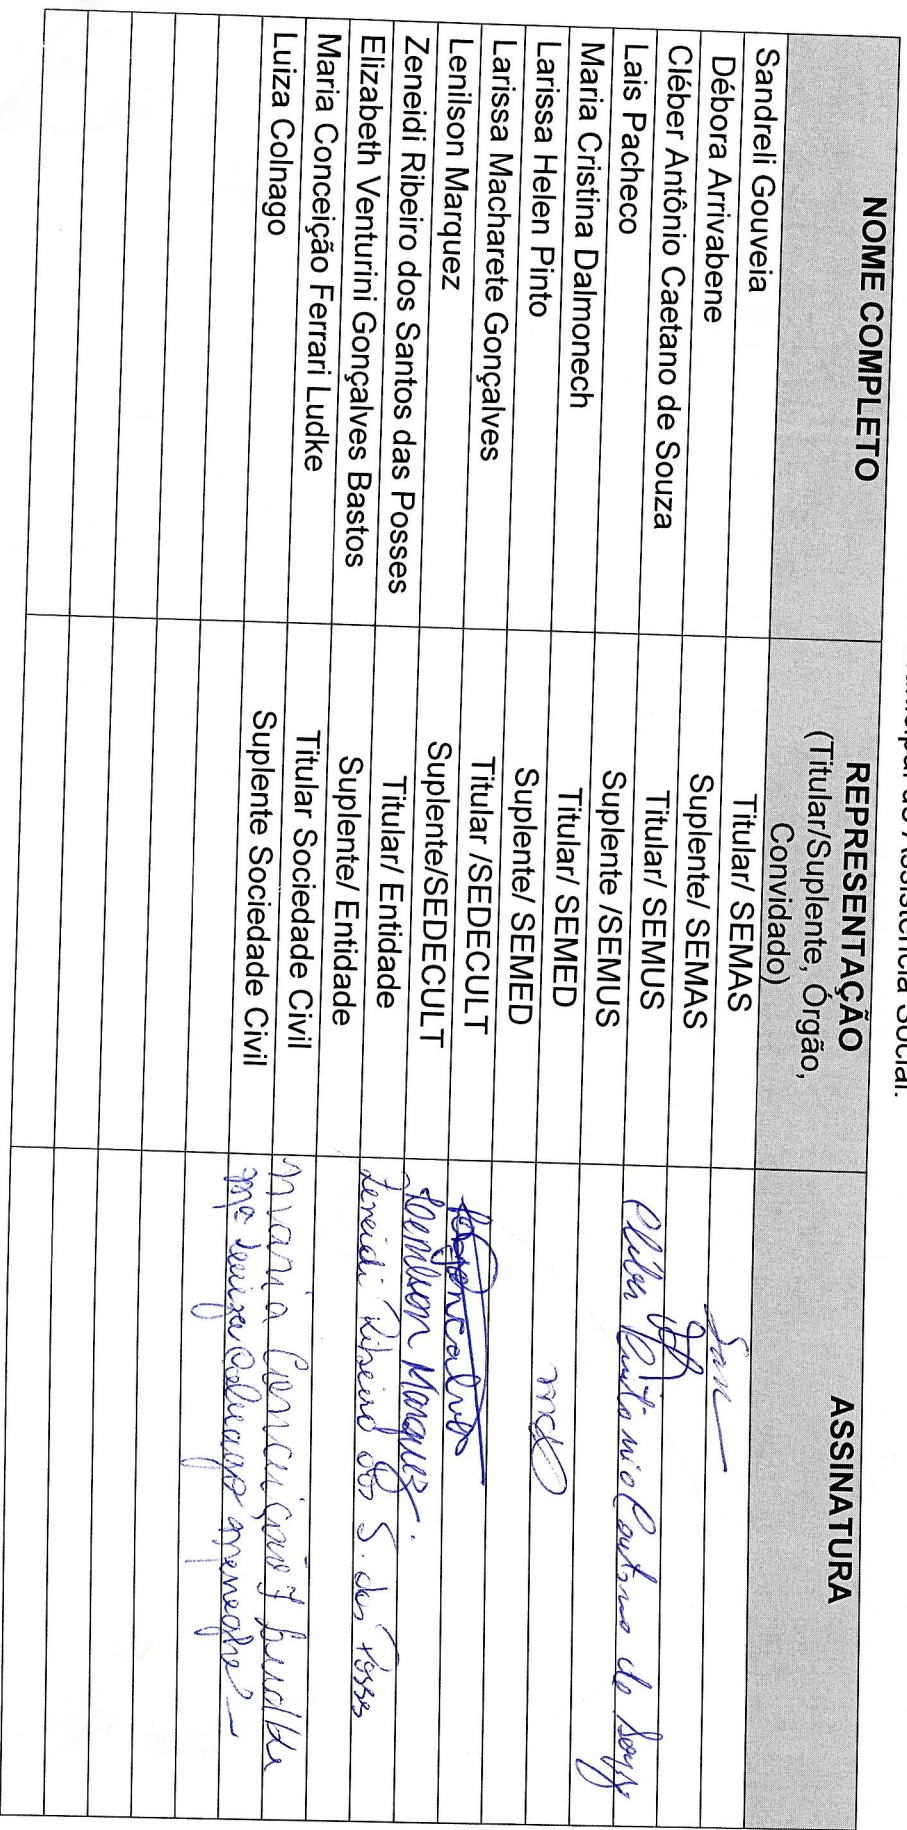 Assistência Social.
NOME COMPLETO REPRESENTAÇÃO ASSINATURA
(Titular/Suplente, Órgão,
Convidado)
Sandreli Gouveia Titular/ SEMAS
Débora Arrivabene Suplente/ SEMAS
Cléber Antônio Caetano de Souza Titular/ SEMUS Cléber Antônio Caetano de Souza
Lais Pacheco Suplente /SEMUS
Maria Cristina Dalmonech Titular/ SEMED mcd
Larissa Helen Pinto Suplente/ SEMED
Larissa Macharete Gonçalves Titular /SEDECULT
Lenilson Marquez Suplente/SEDECULT Lenilson Marquez.
Zeneidi Ribeiro dos Santos das Posses Titular/ Entidade Zeneidi Ribeiro dos S. das Posses
Elizabeth Venturini Gonçalves Bastos Suplente/ Entidade
Maria Conceição Ferrari Ludke Titular Sociedade Civil Maria Conceição F Ludke
Luiza Colnago Suplente Sociedade Civil Mª Luiza Colnago